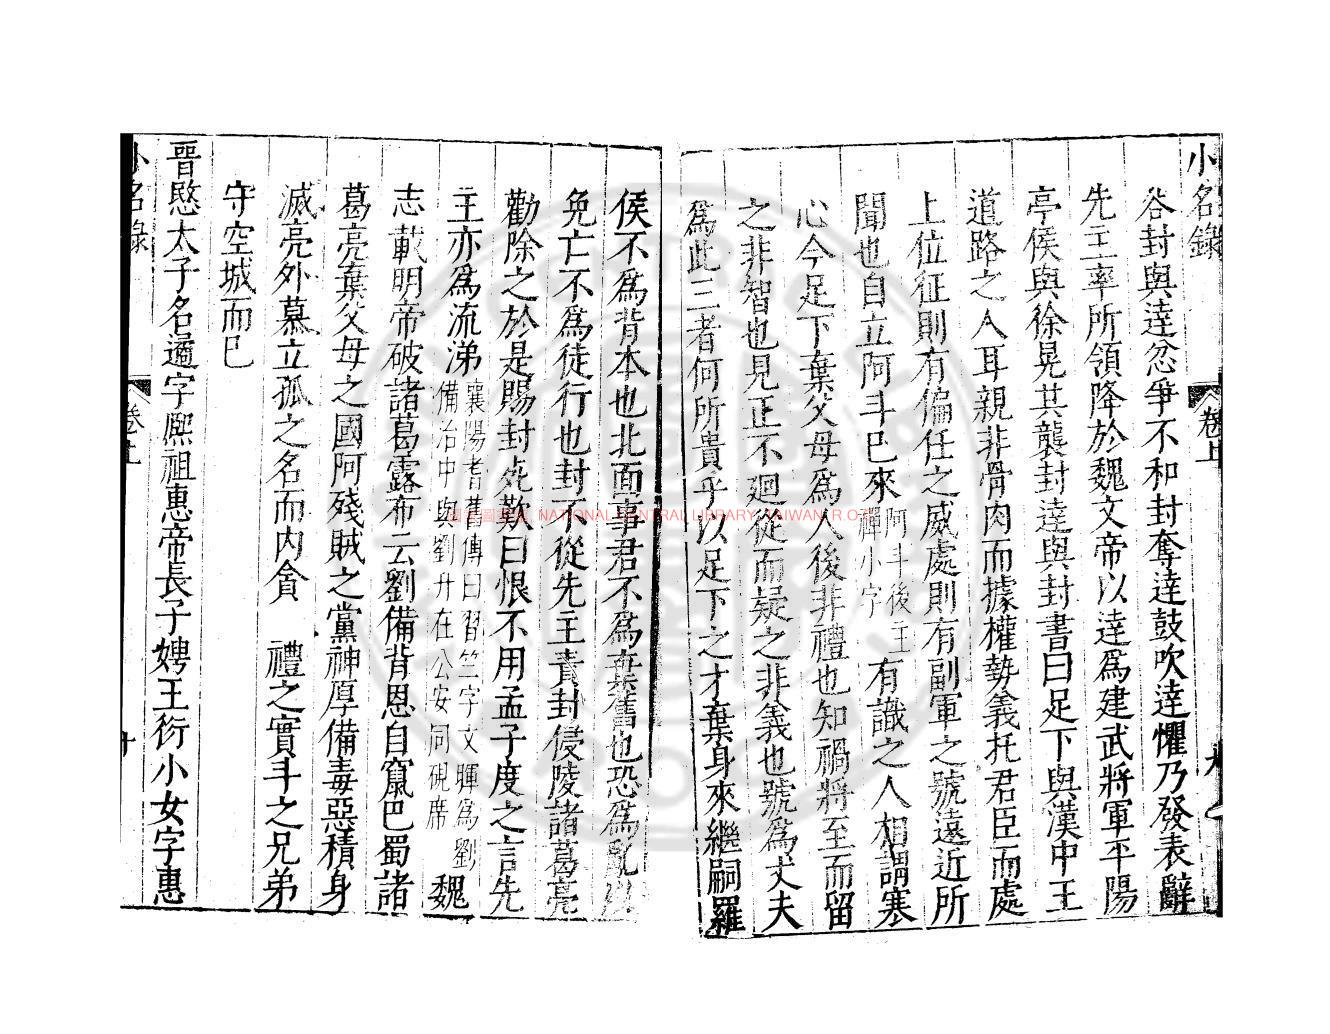 小名錄
卷上
九
咎封與達忿爭不和封奪達鼓吹達懼乃發表辭
先主率所領降於魏文帝以達爲建武將軍平陽
亭侯與徐晃共襲封達與封書曰足下與漢中王
道路之人耳親非骨肉而據權勢義托君臣而處
上位征則有偏任之威處則有副軍之號遠近所
聞也自立阿斗已來阿斗後主禪小字有識之人相謂寒
心今足下棄父母爲人後非禮也知禍將至而留
之非智也見正不廻從而疑之非義也號爲丈夫
爲此三者何所貴乎以足下之才棄身來繼嗣羅
侯不爲背本也北面事君不爲棄舊也恐爲亂以
免亡不爲徒行也封不從先主責封侵陵諸葛亮
勸除之於是賜封死歎曰恨不用孟子度之言先
主亦爲流涕襄陽耆舊傳曰習竺字文暉爲劉備治中與劉升在公安同硯席魏
志載明帝破諸葛露布云劉備背恩自竄巴蜀諸
葛亮棄父母之國阿殘賊之黨神厚備毒惡積身
滅亮外慕立孤之名而內貪 禮之實斗之兄弟
守空城而已
晉愍太子名遹字熈祖惠帝長子娉王衍小女字惠
小名錄
卷上
十
國家圖書館 NATIONAL CENTRAL LIBRARY, TAIWAN, R.O.C